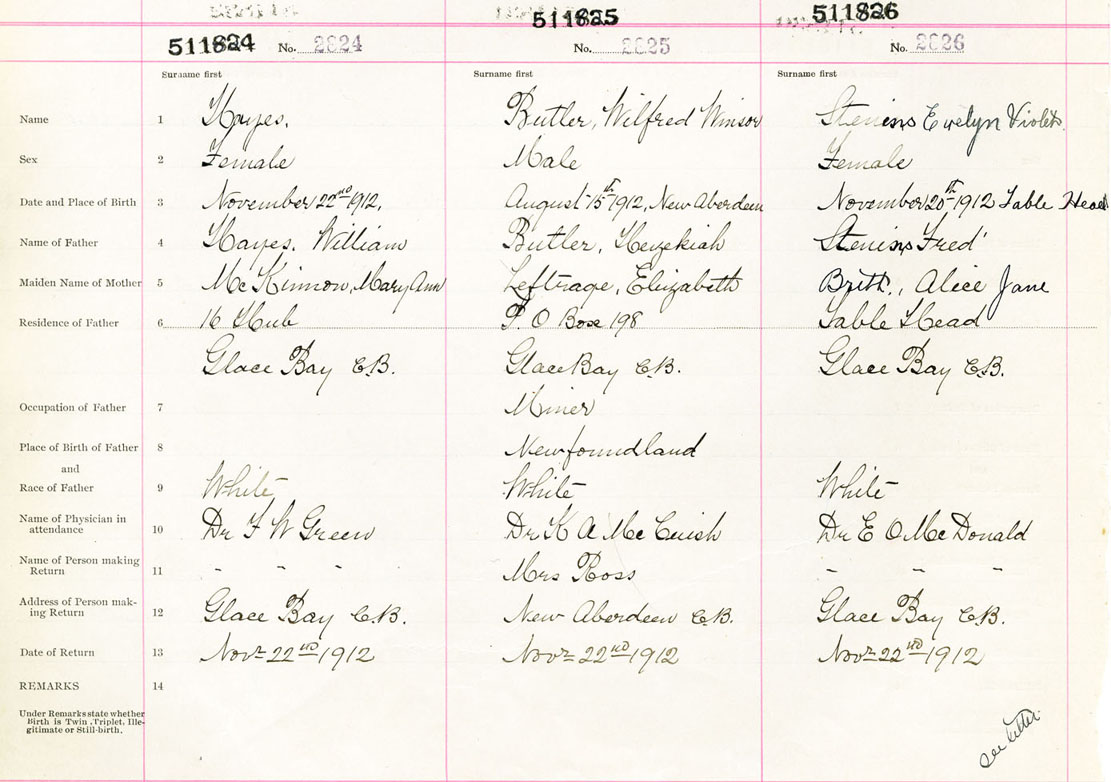 511824 No. 2824
511825 No. 2825
511826 No. 2826
Surname first Surname first Surname first
Name 1 Hayes, Butler, Wilfred Winsor Stevens Evelyn Violet
Sex 2 Female Male Female
Date and Place of Birth 3 November 22nd 1912, August 15th 1912, New Aberdeen November 20th 1912 Table Head
Name of Father 4 Hayes, William Butler, Hezekiah Stevens Fred
Maiden Name of Mother 5 McKinnon, Mary Ann Leftrage, Elizabeth Britt, Alice Jane
Residence of Father 6 16 Hub P. O Boxe 198 Table Head
Glace Bay C.B. Glace Bay C.B. Glace Bay C.B.
Occupation of Father 7 Miner
Place of Birth of Father 8 Newfoundland
and
Race of Father 9 White White White
Name of Physician in
attendance 10 Dr F W Green Dr K A McCuish Dr E O McDonald
Name of Person making
Return 11 " " " Mrs Ross " " "
Address of Person mak-
ing Return 12 Glace Bay C.B. New Aberdeen C.B. Glace Bay C.B.
Date of Return 13 Novr 22nd 1912 Novr 22nd 1912 Novr 22nd 1912
REMARKS 14
Under Remarks state whether
Birth is Twin, Triplet, Ille-
gitimate or Still-birth.
see letter